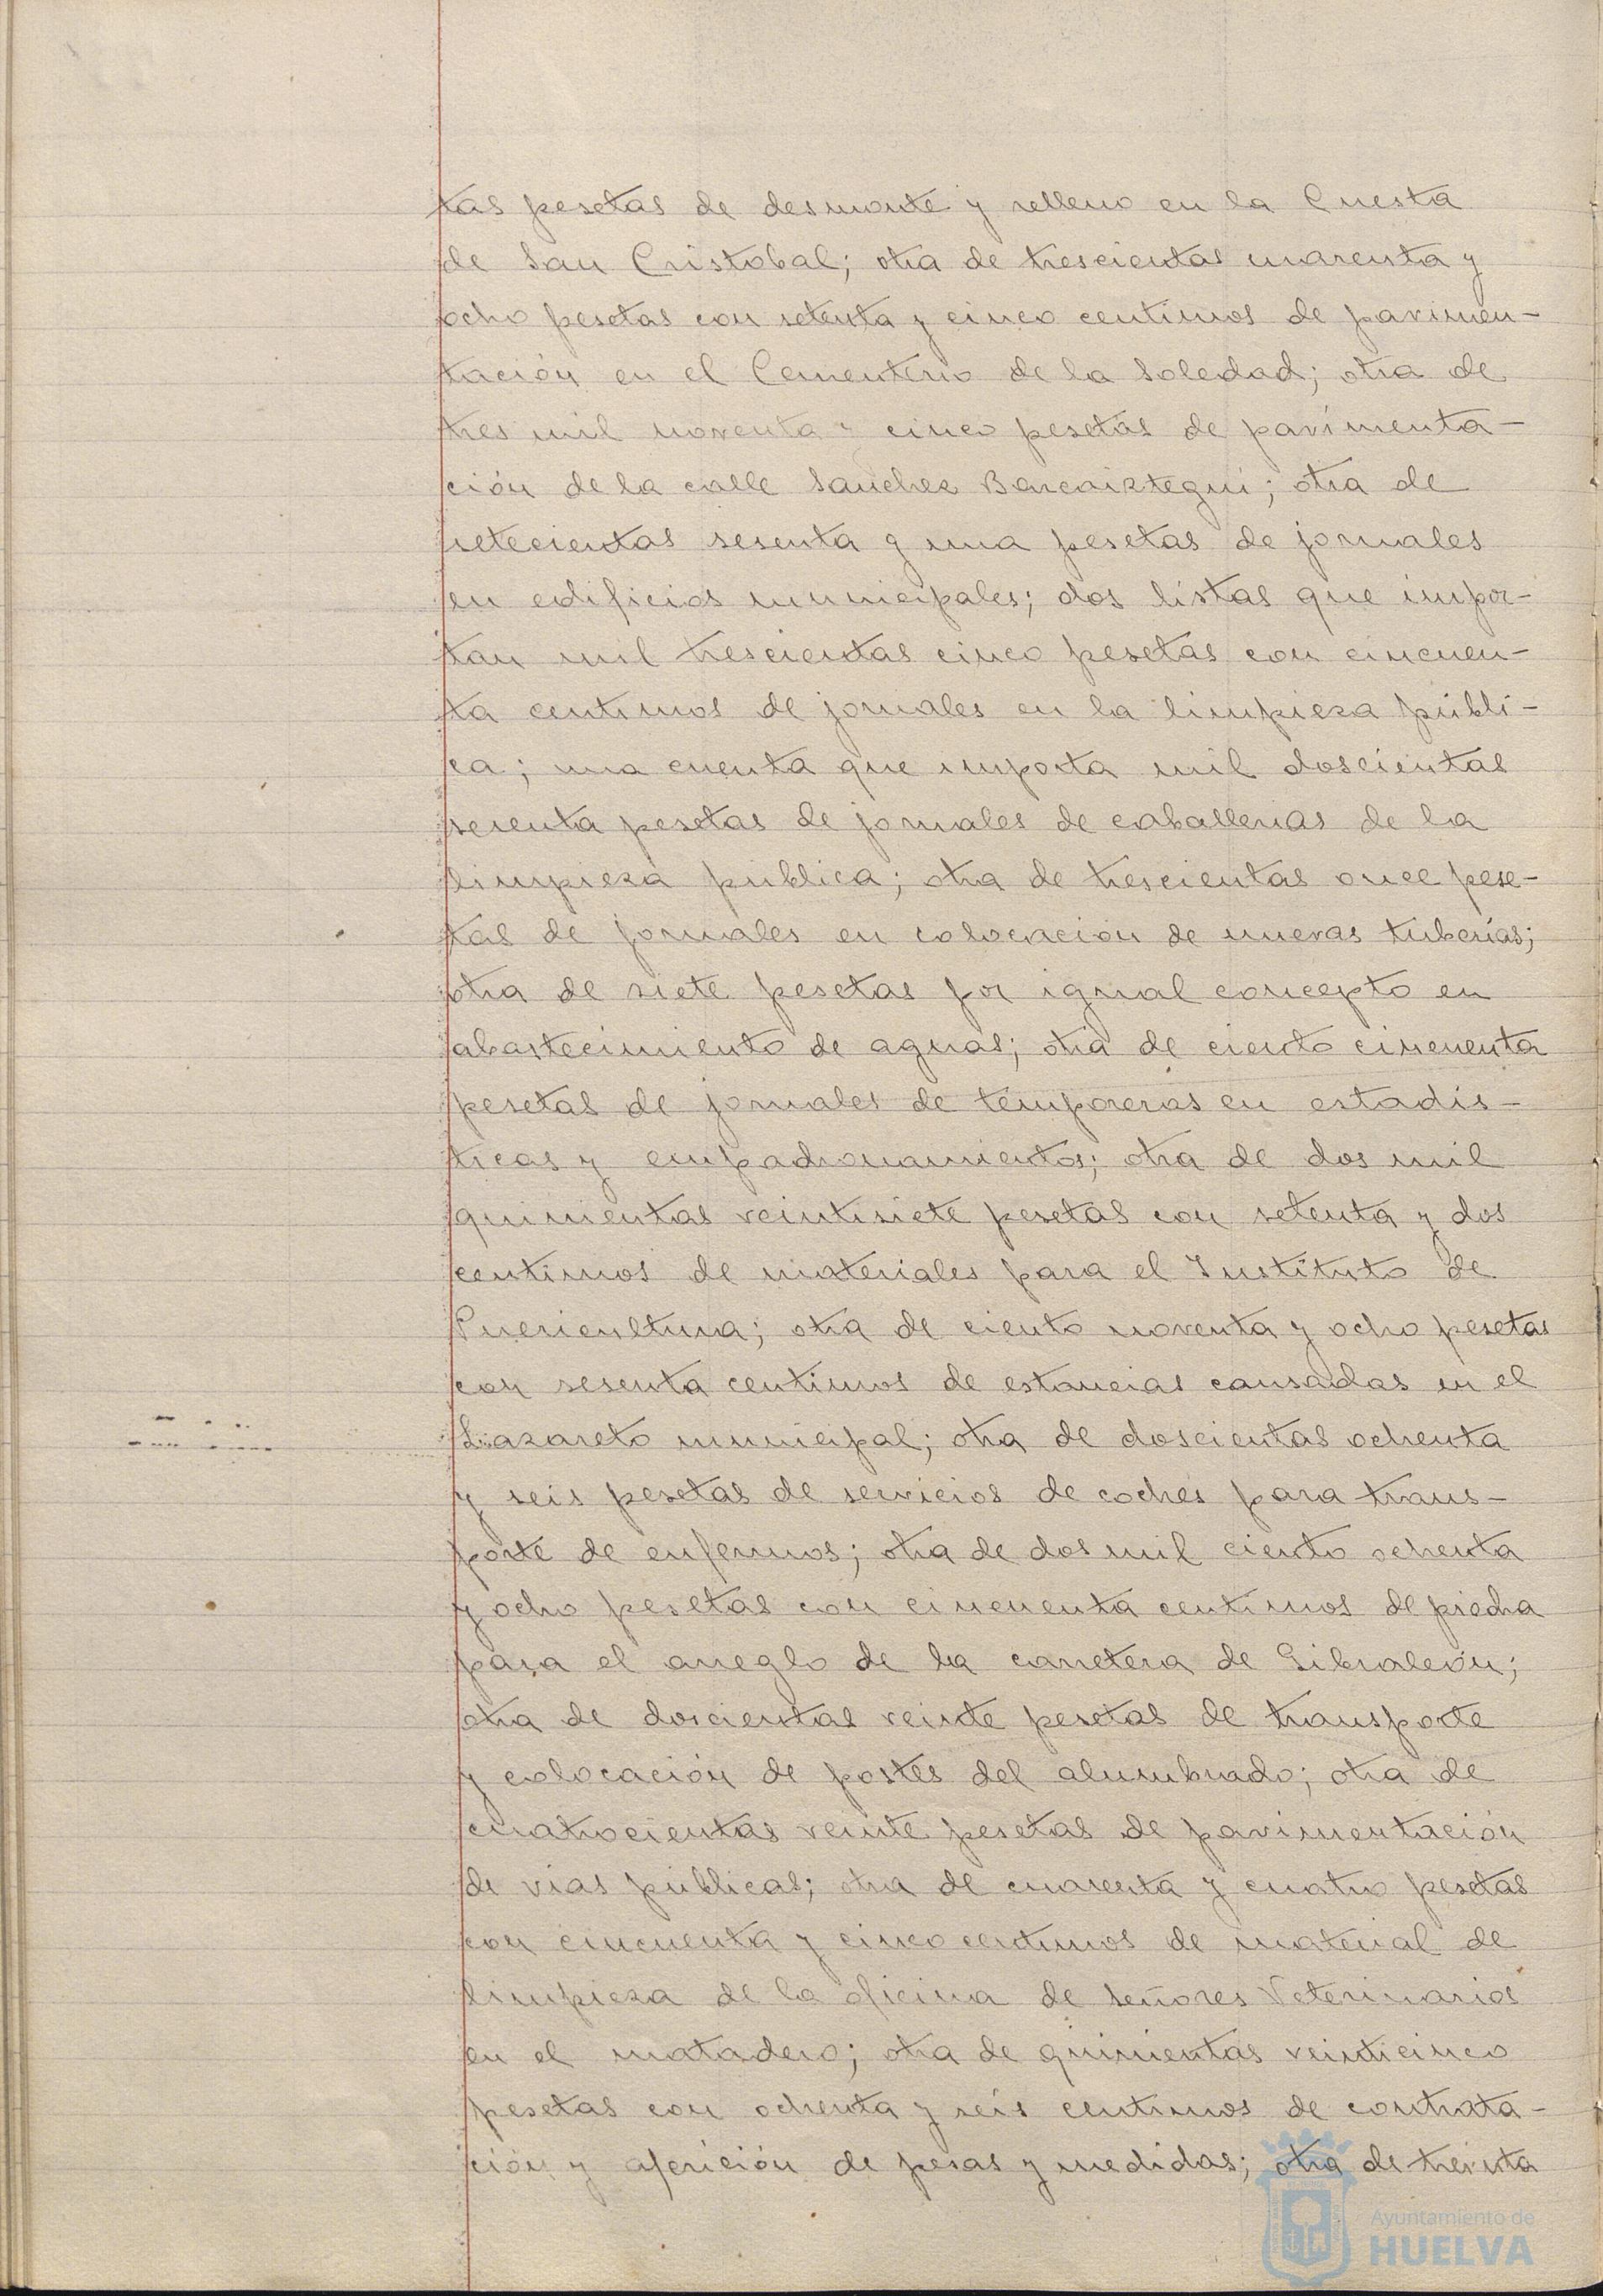 tas pesetas de desmonte y relleno en la Cuesta
de San Cristobal; otra de trescientas cuarenta y
ocho pesetas con setenta y cinco centimos de pavimen-
tación en el Cementerio de la Soledad; otra de
tres mil noventa y cinco pesetas de pavimenta-
ción de la calle Sanchez Barcaiztegui; otra de
setecientas sesenta y una pesetas de jornales
en edificios municipales; dos listas que impor-
tan mil trescientas cinco pesetas con cincuen-
ta centimos de jornales en la limpieza públi-
ca; una cuenta que importa mil doscientas
sesenta pesetas de jornales de caballerias de la
limpieza publica; otra de trescientas once pese-
tas de jornales en colocacion de nuevas tuberías;
otra de siete pesetas por igual concepto en
abastecimiento de aguas; otra de ciento cincuenta
pesetas de jornales de temporeros en estadis-
ticas y empadronamientos; otra de dos mil
quinientas veintisiete pesetas con setenta y dos
centimos de materiales para el Instituto de
Puericultura; otra de ciento noventa y ocho pesetas
con sesenta centimos de estancias causadas en el
Lazareto municipal; otra de doscientas ochenta
y seis pesetas de servicios de coches para trans-
porte de enfermos; otra de dos mil ciento ochenta
y ocho pesetas con cincuenta centimos de piedra
para el arreglo de la carretera de Gibraleón;
otra de doscientas veinte pesetas de transporte
y colocación de postes del alumbrado; otra de
cuatrocientas veinte pesetas de pavimentación
de vias públicas; otra de cuarenta y cuatro pesetas
con cincuenta y cinco centimos de material de
limpieza de la oficina de señores Veterinarios
en el matadero; otra de quinientas veinticinco
pesetas con ochenta y seis centimos de contrata-
ción y aferición de pesas y medidas; otra de treinta
Ayuntamiento de
HUELVA